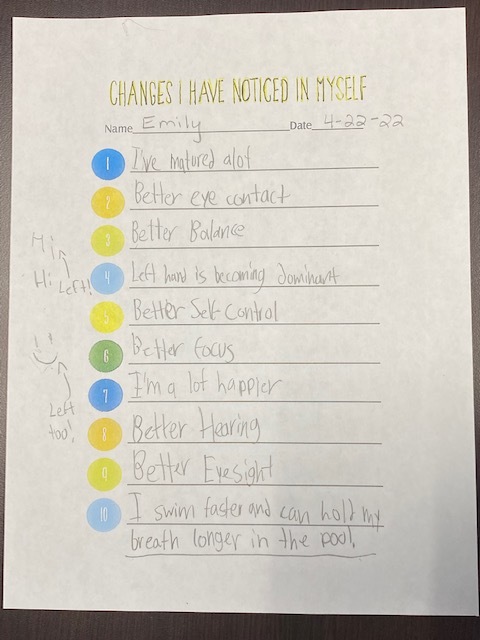 CHANGES I HAVE NOTICED IN MYSELF
Name Emily Date 4-22-22
1 I've matured alot
2 Better eye contact
3 Better Balance
4 Left hand is becoming dominant
5 Better Self Control
6 Better focus
7 I'm a lot happier
8 Better Hearing
9 Better Eyesight
10 I swim faster and can hold my
breath longer in the pool.
Hi
Hi
Left!
:)
Left
too!